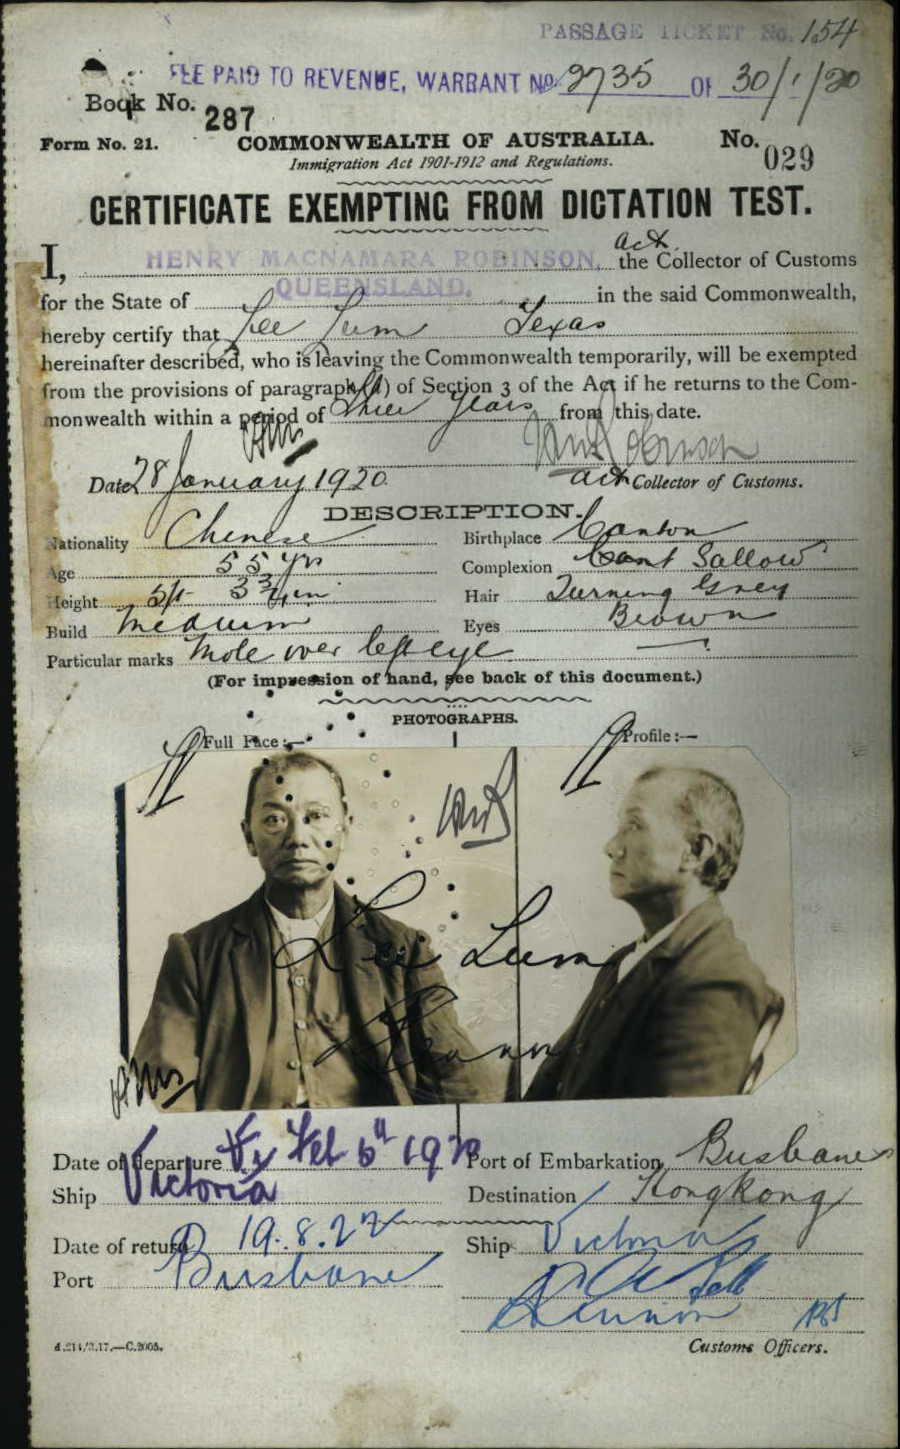 PASSAGE TICKET No. 154
FEE PAID TO REVENUE, WARRANT No. 2735 OF 30/1/20
Book No. 287
Form No. 21. COMMONWEALTH OF AUSTRALIA. No. 029
Immigration Act 1901-1912 and Regulations.
CERTIFICATE EXEMPTING FROM DICTATION TEST.
I, HENRY MACNAMARA ROBINSON, act. the Collector of Customs
for the State of QUEENSLAND. in the said Commonwealth,
hereby certify that Lee Lum Texas
hereinafter described, who is leaving the Commonwealth temporarily, will be exempted
from the provisions of paragraph (a) of Section 3 of the Act if he returns to the Com-
monwealth within a period of three years from this date.
Date 28 January 1920. act Collector of Customs.
DESCRIPTION.
Nationality Chinese Birthplace Canton
Age 55 yrs Complexion Sallow
Height 5ft 3 3/4 ins Hair Turning Grey
Build Medium Eyes Brown
Particular marks Mole over left eye
(For impression of hand, see back of this document.)
PHOTOGRAPHS.
Full Face:— Profile:—
Lee Lum
Date of departure Feb 6th 1920 Port of Embarkation Brisbane
Ship Victoria Destination Hongkong
Date of return 19.8.22 Ship Victoria
Port Brisbane
d.214/3.17.—C.2005. Customs Officers.